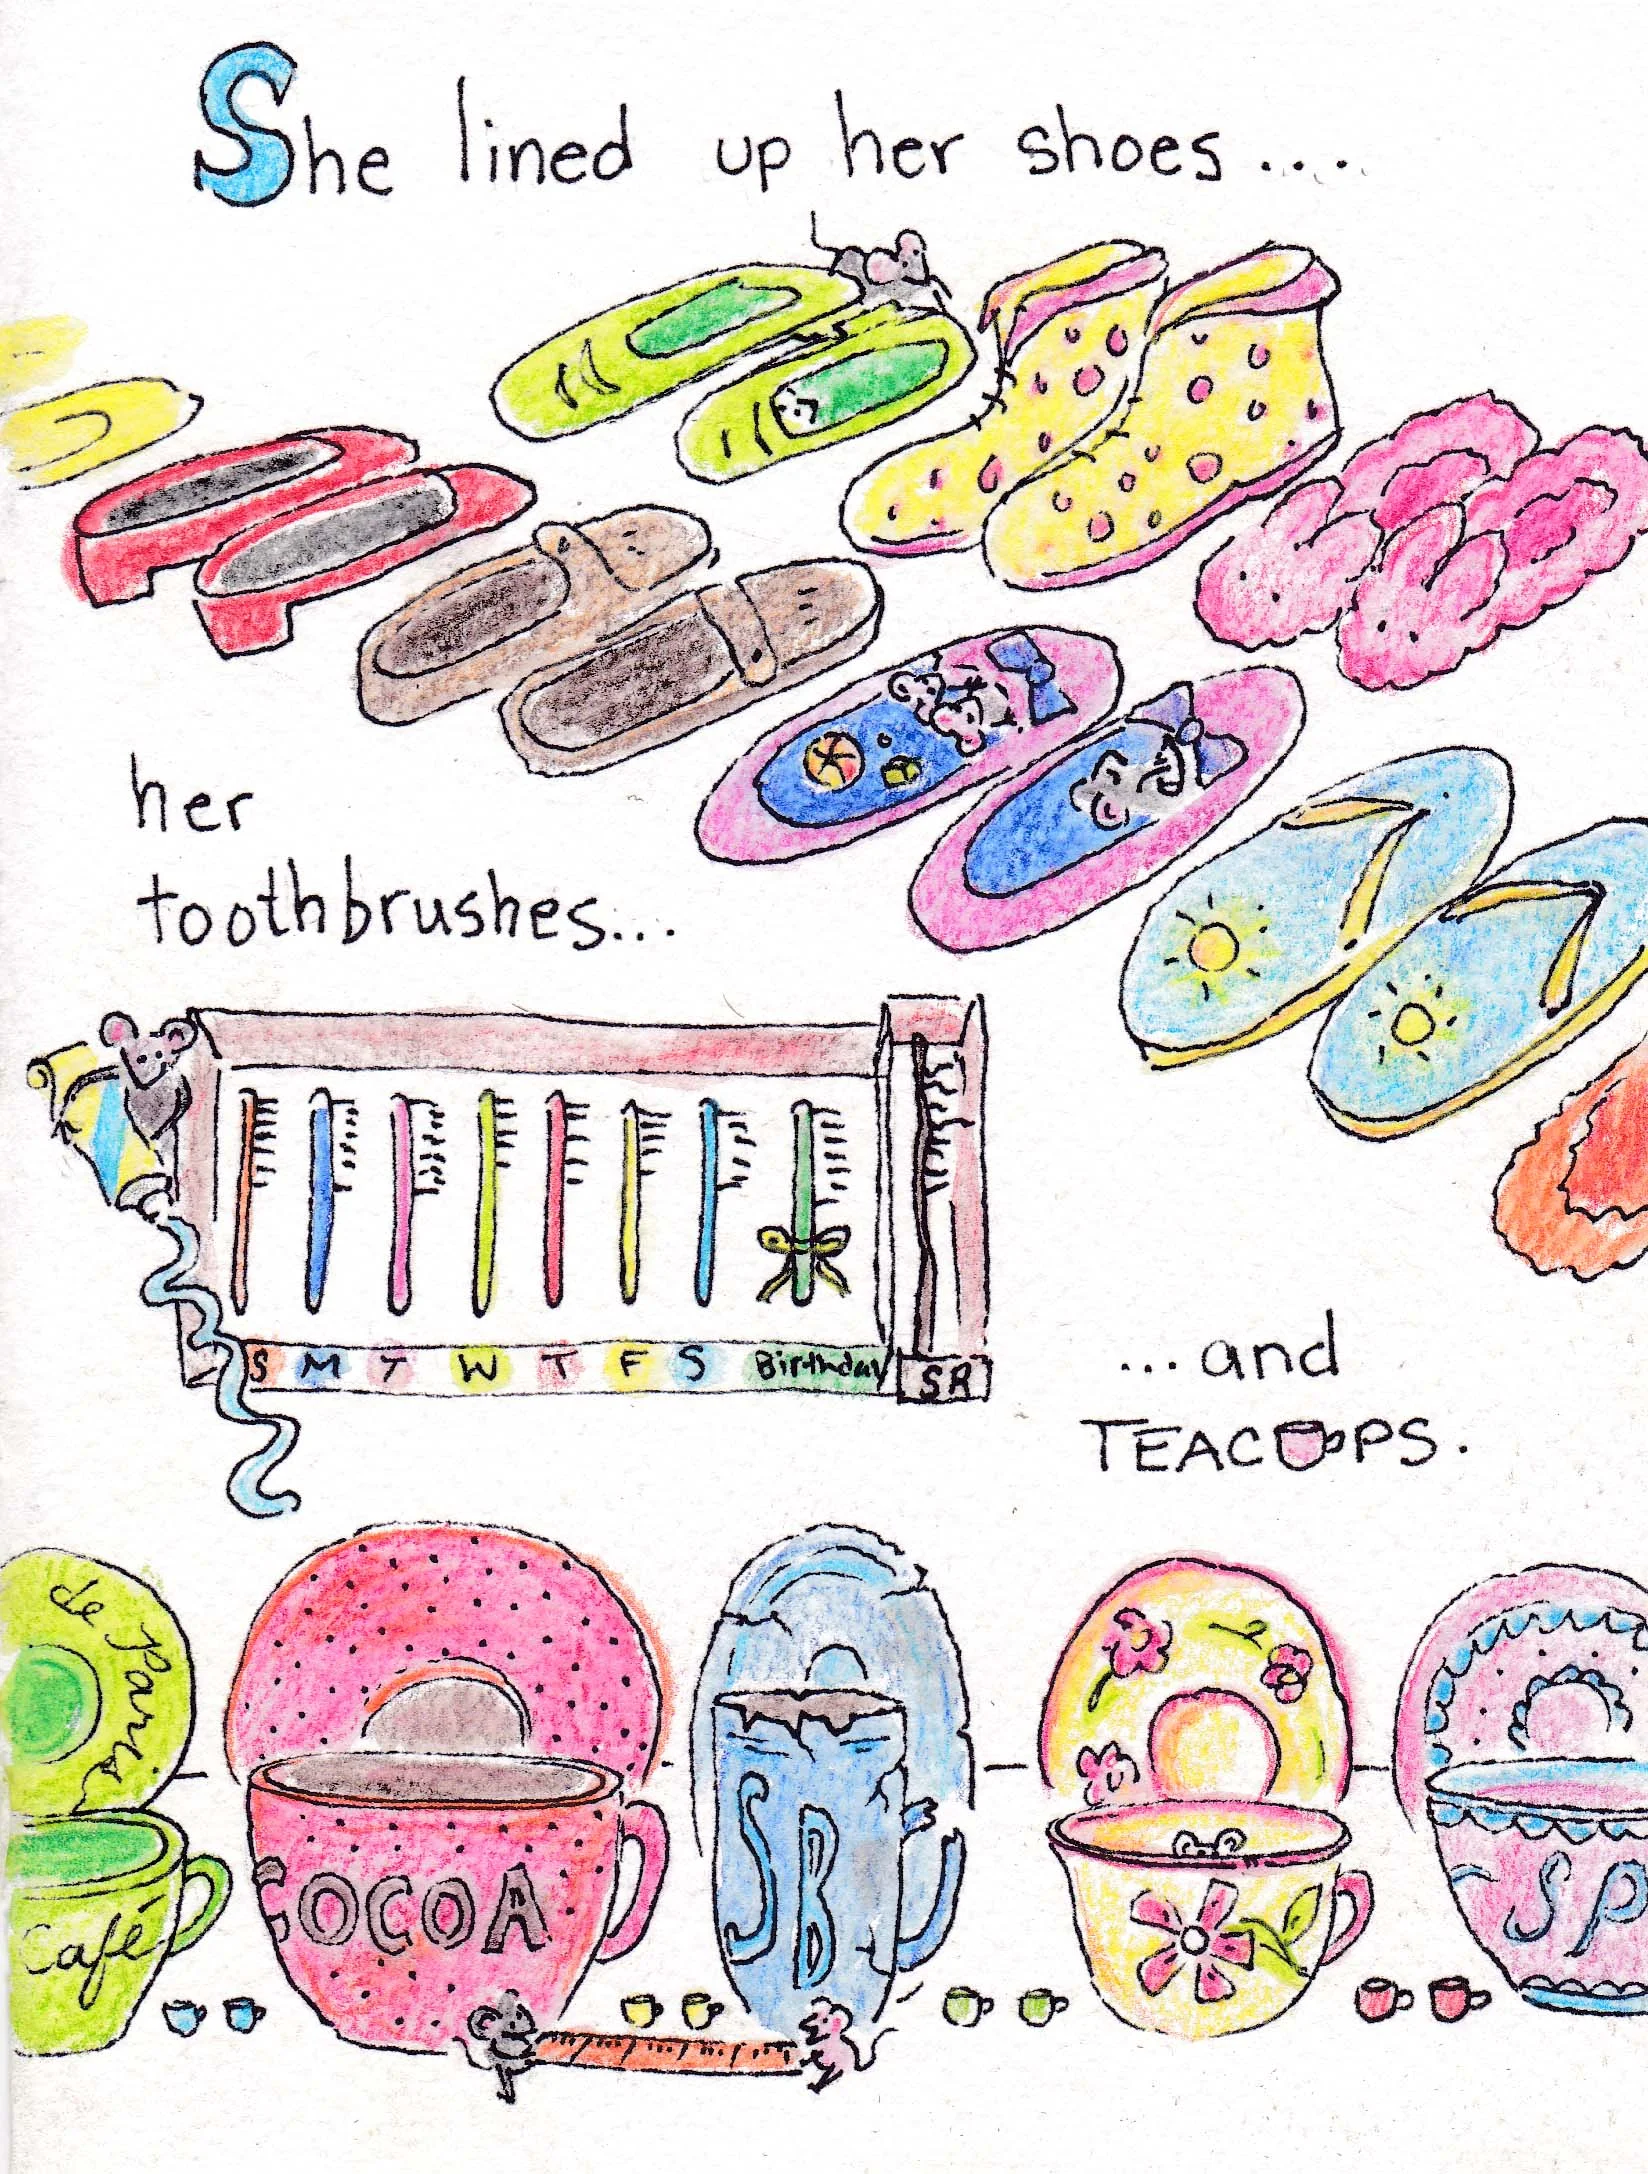 She lined up her shoes....
her
toothbrushes...
S M T W T F S Birthday SR
...and
TEACUPS.
de Paris
Café
COCOA
SB
SP